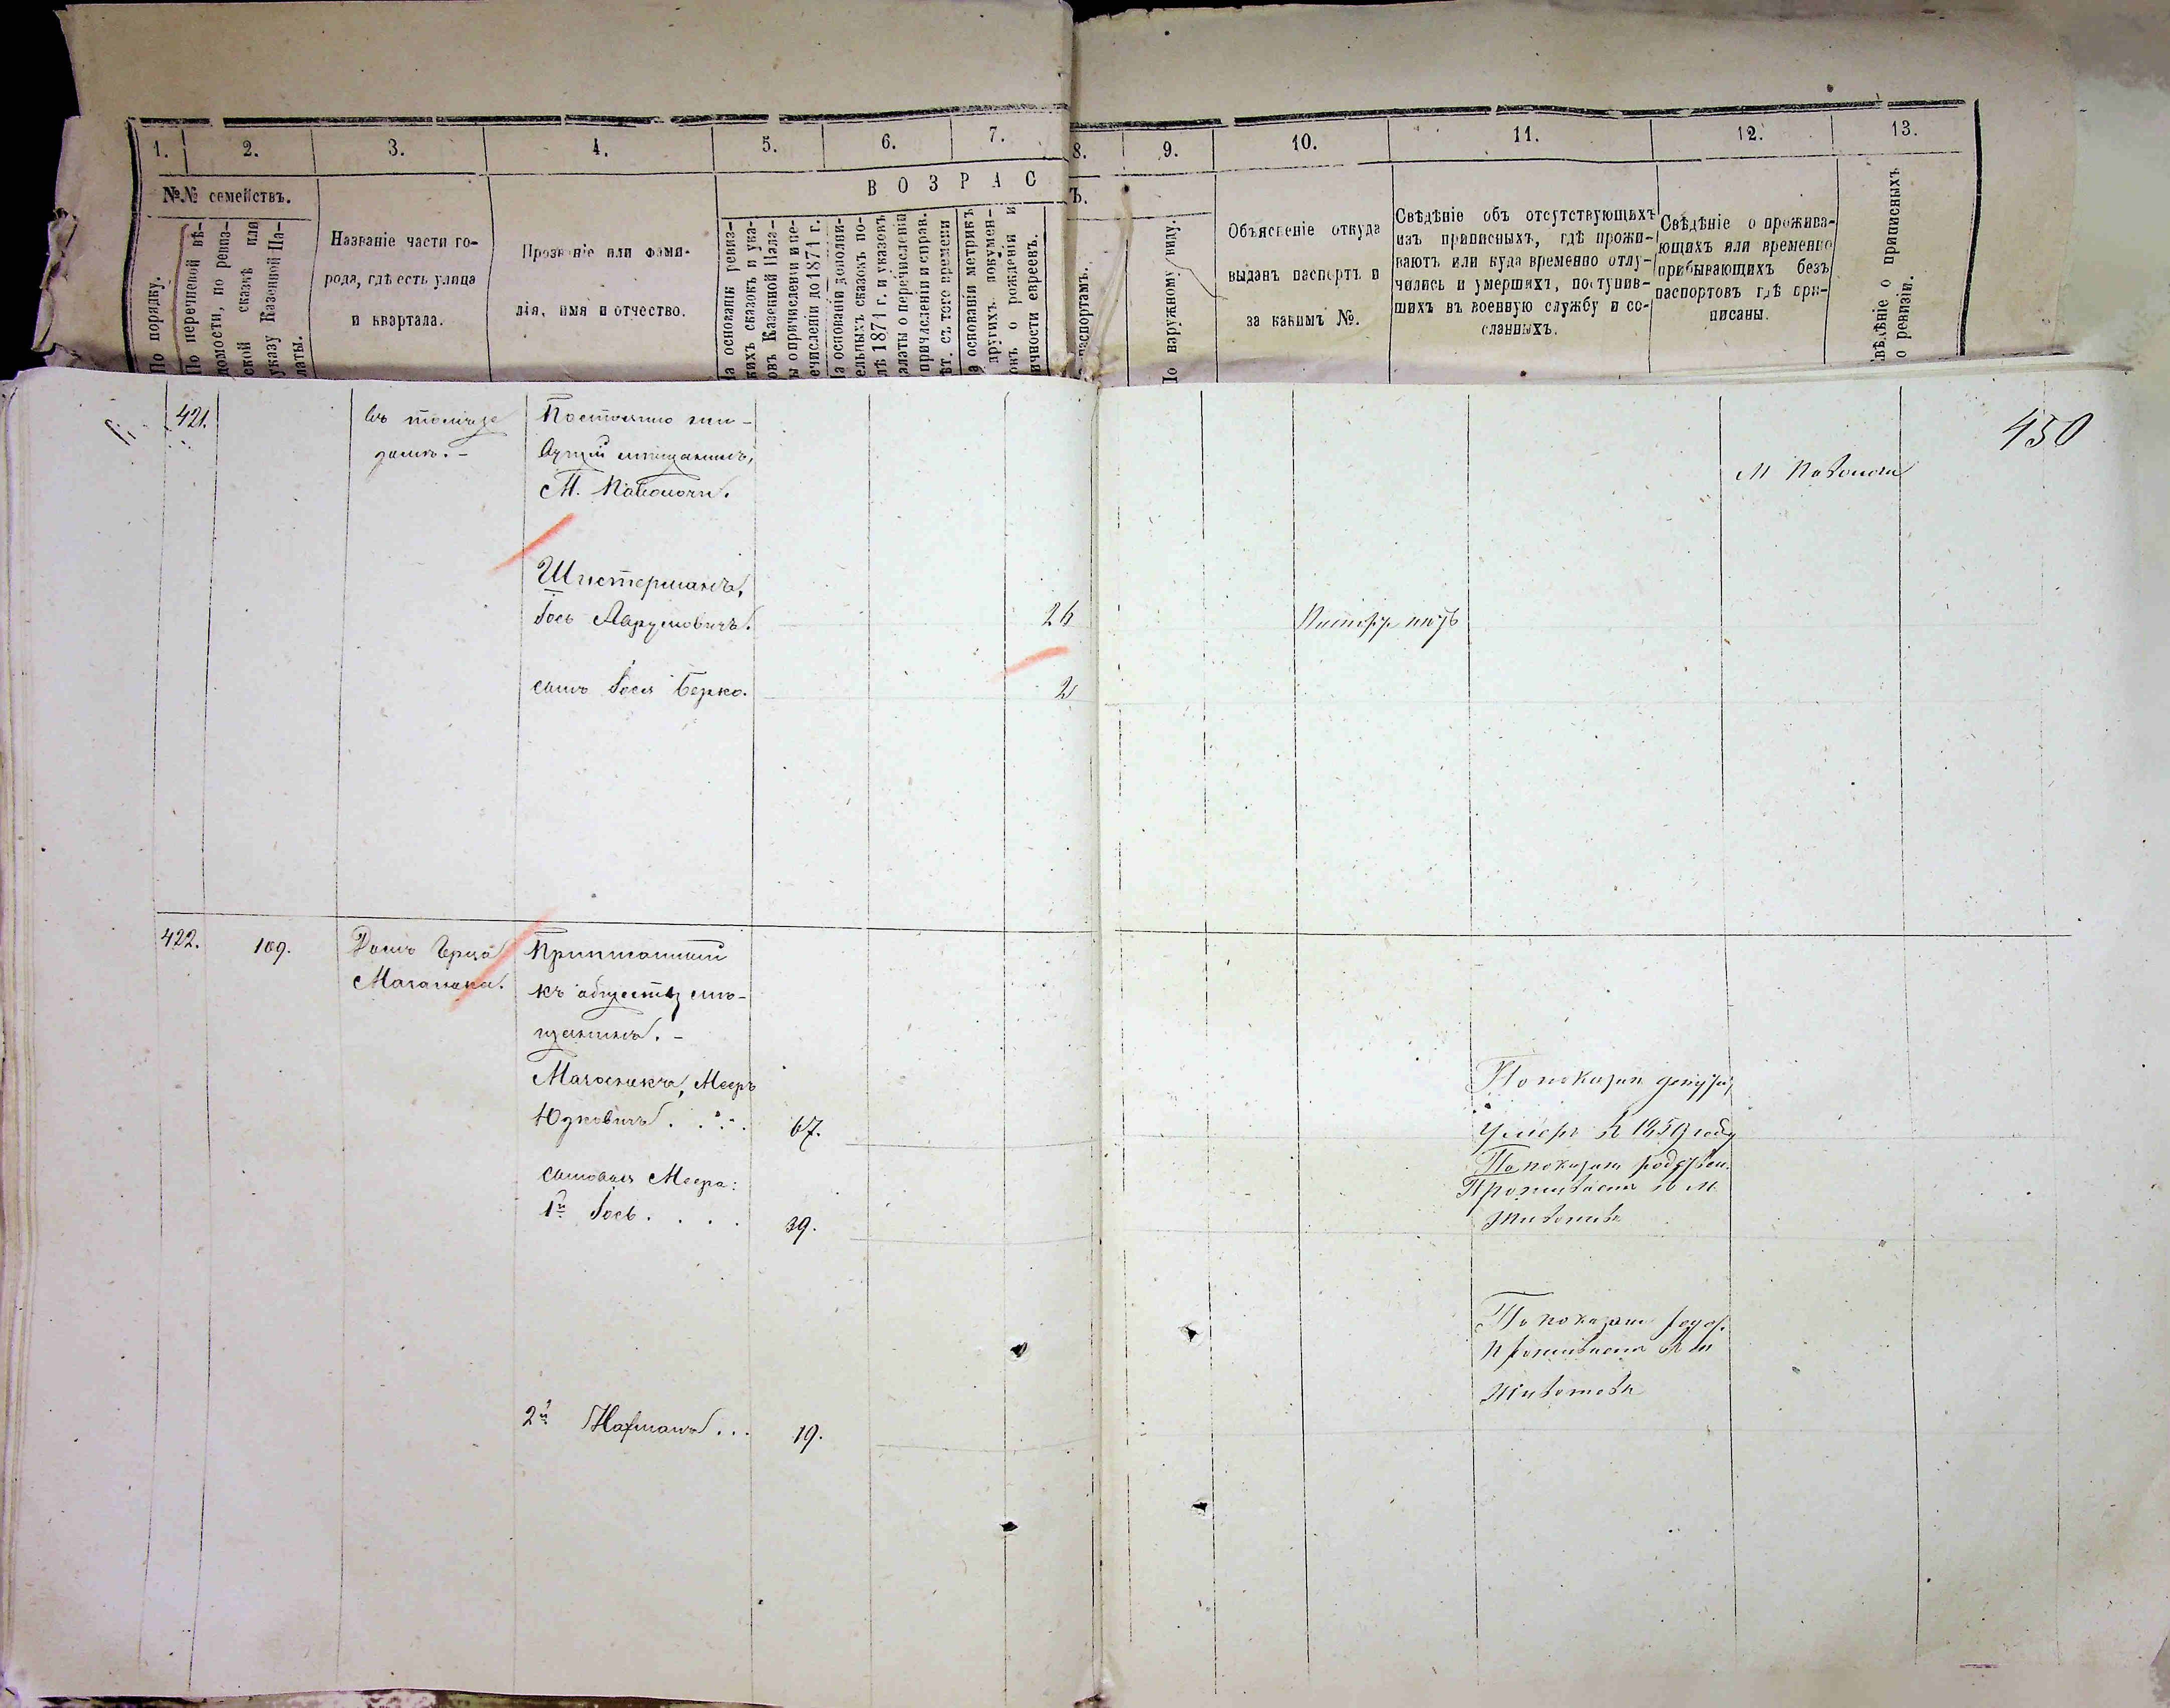 1. 2. 3. 4. 5. 6. 7. 8. 9. 10. 11. 12. 13.
№№ семействъ.
По порядку.
По перечневой вѣ-
домости, по ревиз-
ской сказкѣ или
указу Казенной Па-
латы.
Названіе части го-
рода, гдѣ есть улица
и квартала.
Прозваніе или фами-
лія, имя и отчество.
ВОЗРАС
Ъ.
На основаніи ревиз-
скихъ сказокъ и ука-
зовъ Казенной Пала-
ты о причисленіи и пе-
речисленіи до 1871 г.
На основаніи дополни-
тельныхъ сказокъ по-
слѣ 1871 г. и указовъ
палаты о перечисленіи
причисленіи и справ.
лѣт. съ того времени
На основаніи метрикъ
другихъ докумен-
товъ о рожденіи и
личности евреевъ.
паспортамъ.
По наружному виду.
Объясненіе откуда
выданъ паспортъ и
за какимъ №.
Свѣдѣніе объ отсутствующихъ
изъ приписныхъ, гдѣ прожи-
ваютъ или куда временно отлу-
чились и умершихъ, поступив-
шихъ въ военную службу и со-
сланныхъ.
Свѣдѣніе о прожива-
ющихъ или временно
прибывающихъ безъ
паспортовъ гдѣ при-
писаны.
Свѣдѣніе о приписныхъ
о ревизіи.
450
421.
въ томъ же
домѣ. -
Постоянно жи-
вущій мѣщанинъ,
М. Паволочи.
М Паволочи
Шистерманъ,
Іось Аврумовичъ.
26
сынъ Іося Берко.
2
422. 109.
Домъ Герца
Маганика.
Приписанный
къ обществу мѣ-
щанинъ. -
Маганикъ, Мееръ
Юдковичъ . . . .
67.
По показан депутат
Умеръ в 1859 году
сыновья Меера:
1й Іось . . . .
39.
По показан родствен.
Проживаетъ в м
Животовѣ
2й Нафманъ . . .
19.
По показан родс.
Проживаетъ в м
Животовѣ